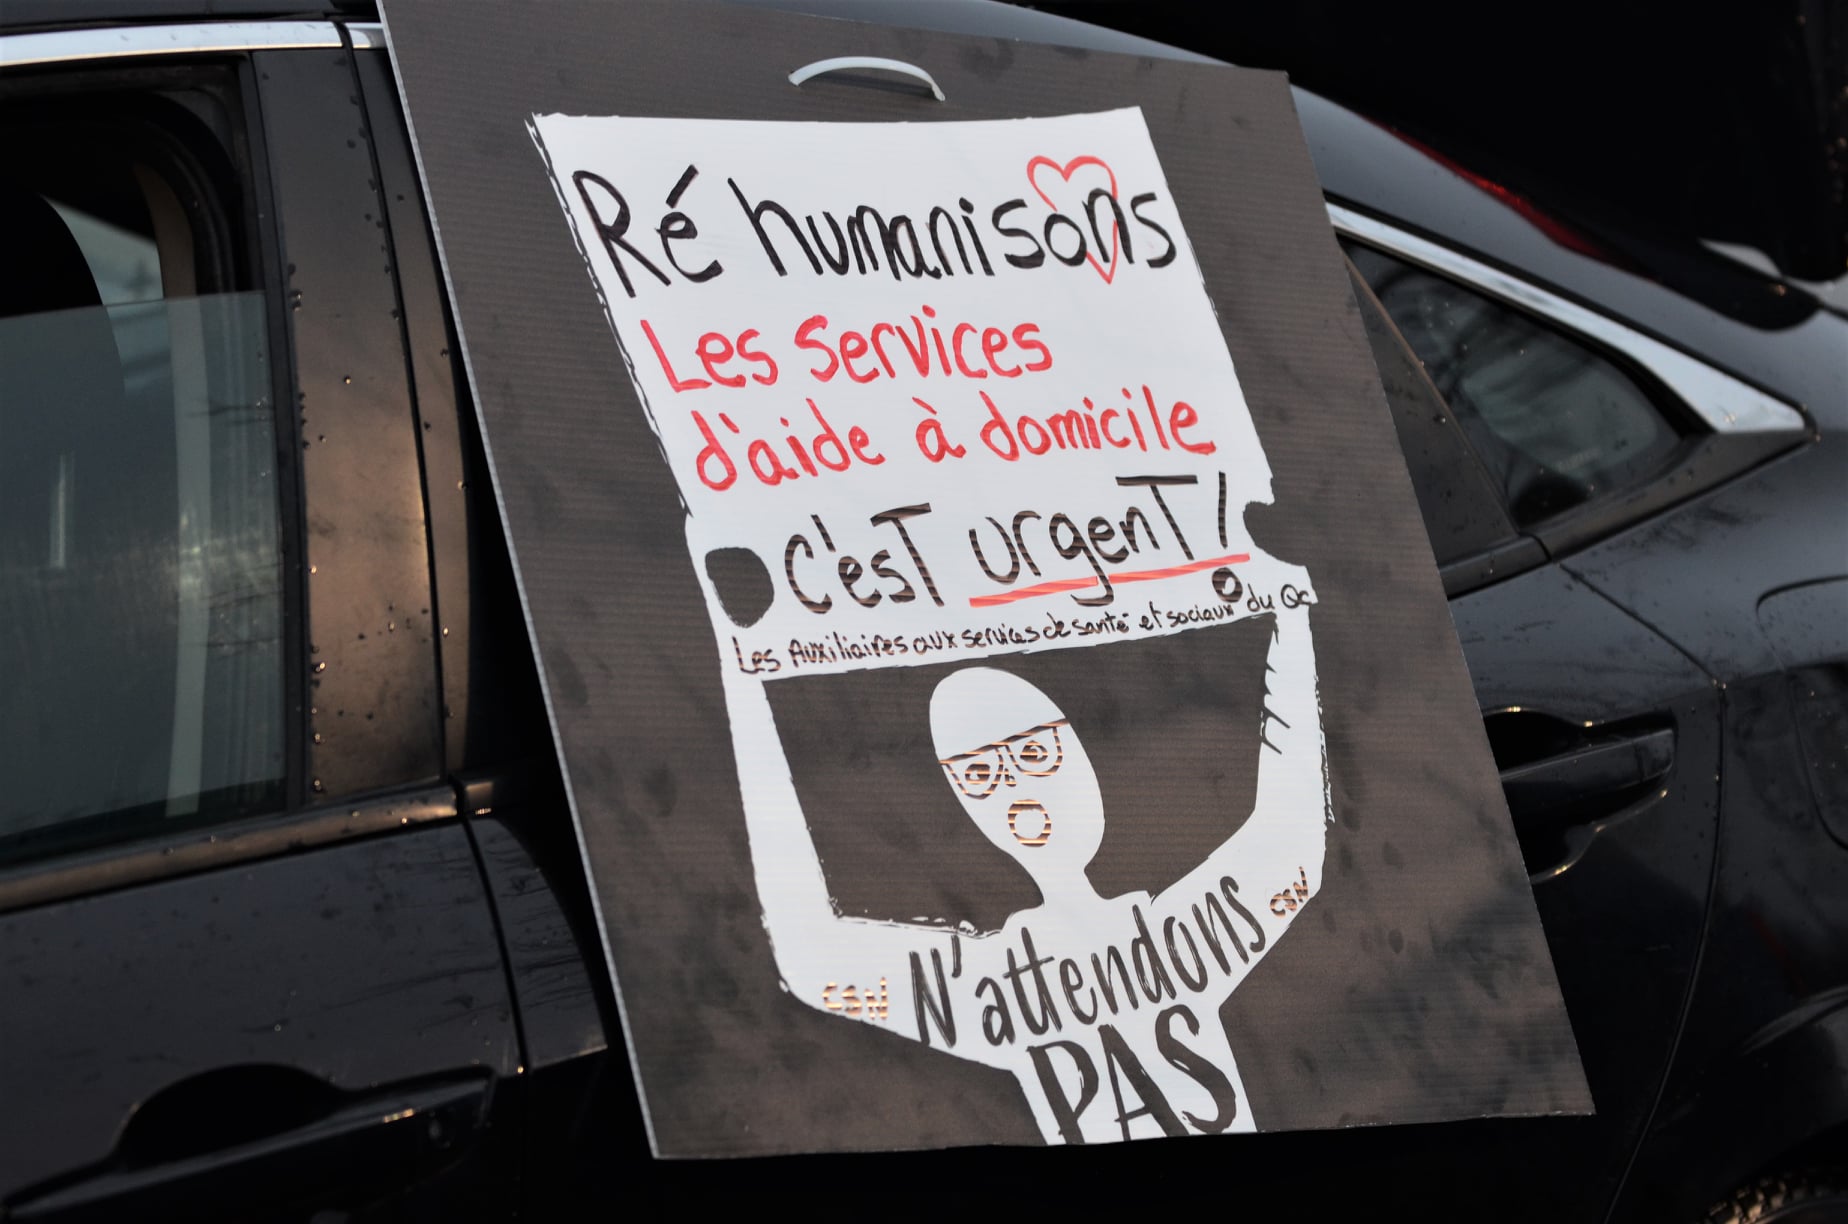 Ré humanisons
Les services
d'aide à domicile
C'est urgent !
Les Auxiliaires aux services de santé et sociaux du Qc
CSN
N'attendons
PAS
CSN